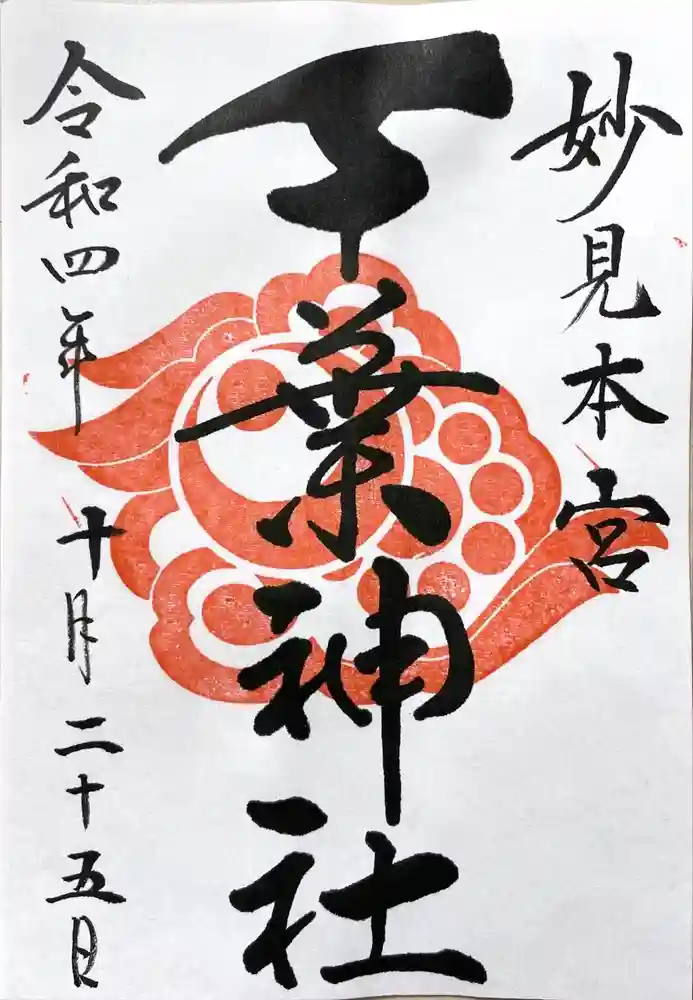 妙見本宮
千葉神社
令和四年 十月二十五日